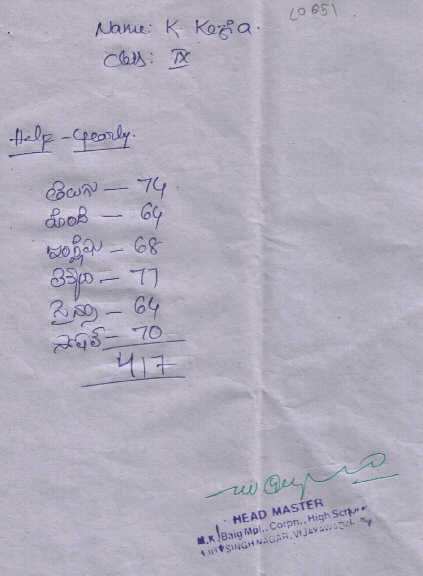 Name: K Kezia.
Class: IX
Help - yearly.
తెలుగు — 74
హిందీ — 64
ఇంగ్లీషు — 68
లెక్కలు — 77
సైన్సు — 64
సోషల్ — 70
417
HEAD MASTER
M.K. Baig Mpl., Corpn., High School
SINGH NAGAR, VIJAYAWADA